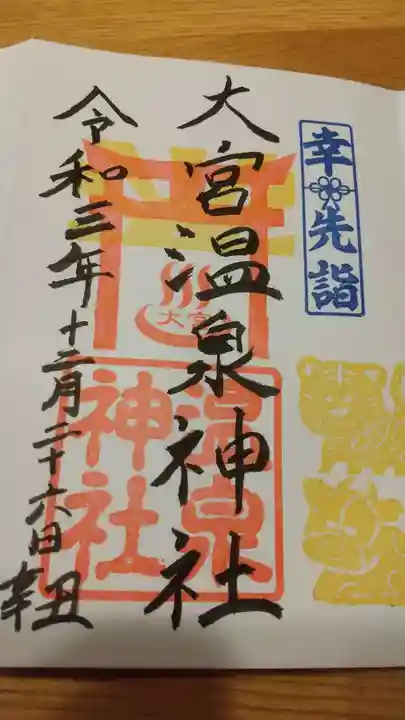 幸先詣
大宮温泉神社
大宮
温泉
神社
令和三年十二月二十六日 辛丑